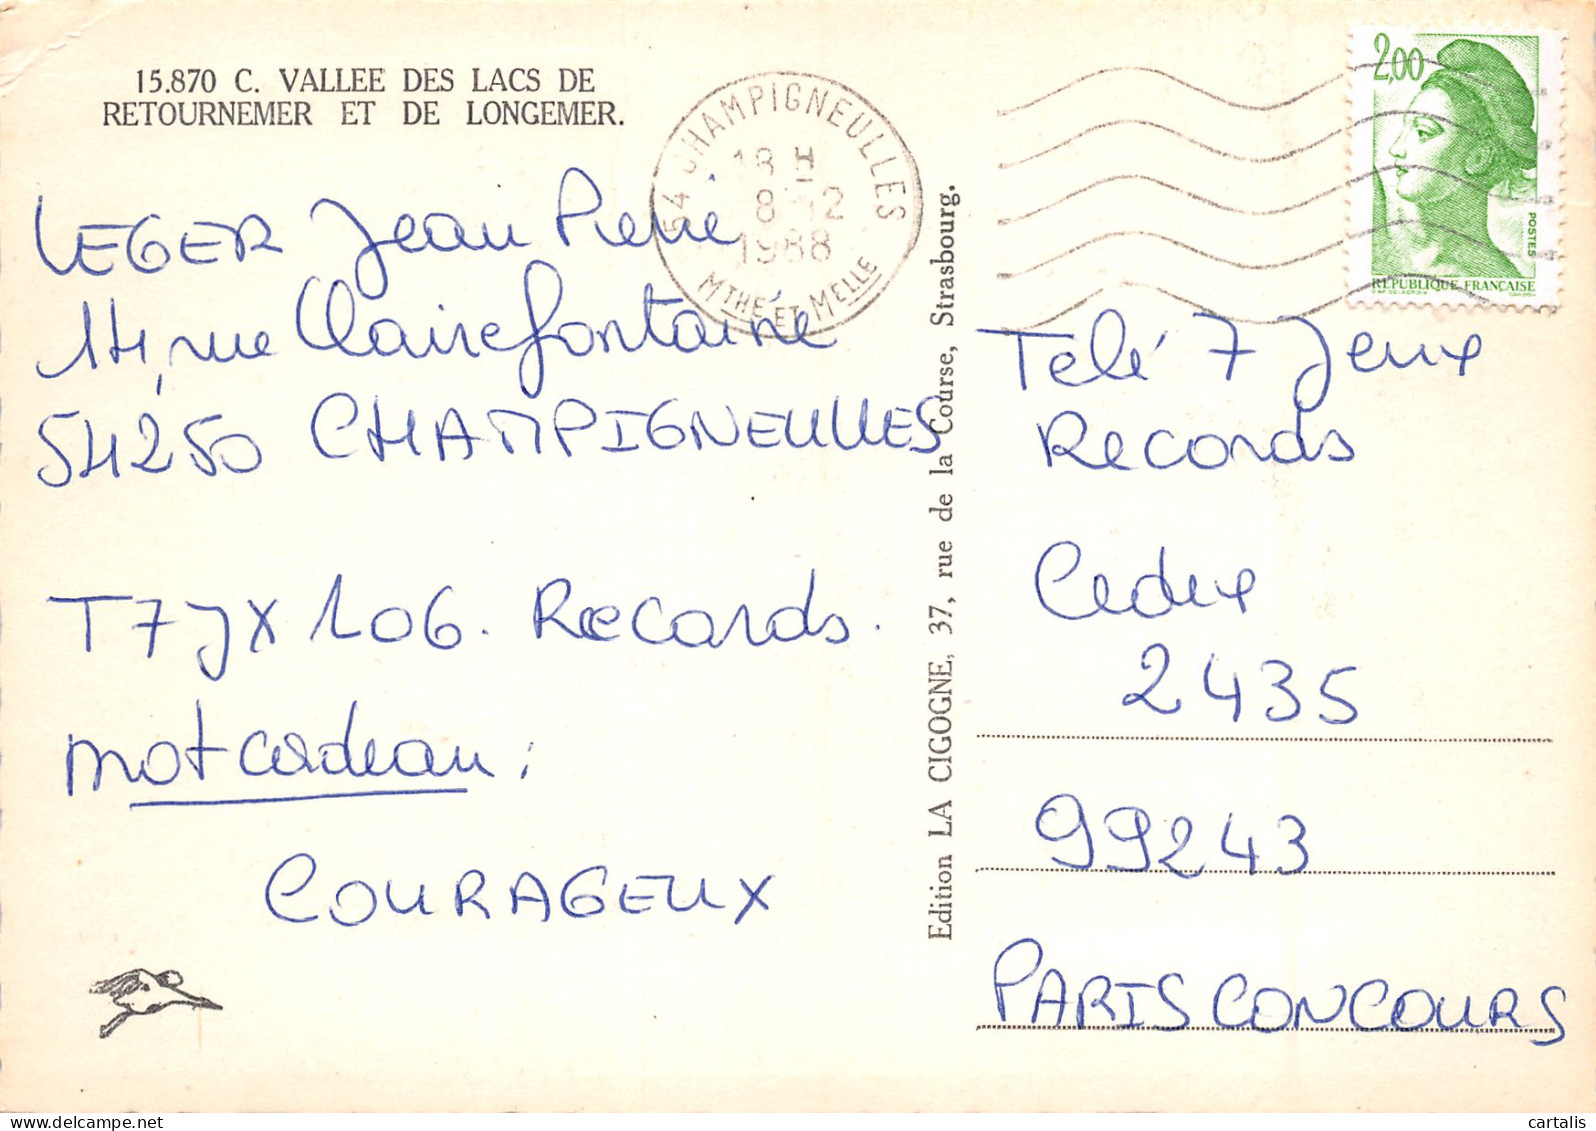 15.870 C. VALLEE DES LACS DE
RETOURNEMER ET DE LONGEMER.
54 CHAMPIGNEULLES
18 H
8 12
1988
MTHE ET MELLE
2,00
POSTES
REPUBLIQUE FRANÇAISE
D'AP. DELACROIX GANDON
LEGER Jean Pierre
14, rue Clairefontaine
54250 CHAMPIGNEULLES
T7JX 106. Records.
mot cadeau :
COURAGEUX
Edition LA CIGOGNE, 37, rue de la Course, Strasbourg.
Télé 7 Jeux
Records
Cedex
2435
99243
PARIS CONCOURS
www.cartalis.com
cartalis